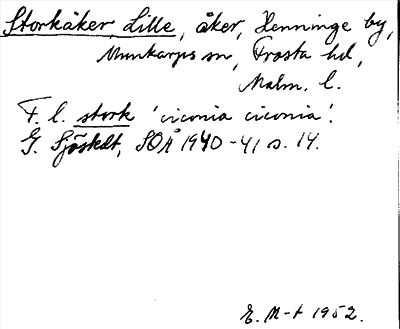 Storkåker, Lille, åker, Henninge by,
Munkarps sn, Frosta hd,
Malm. l.
F. l. stork 'ciconia ciconia'.
G. Sjöstedt, SOÅ 1940-41 s. 14.
E. M-t 1952.